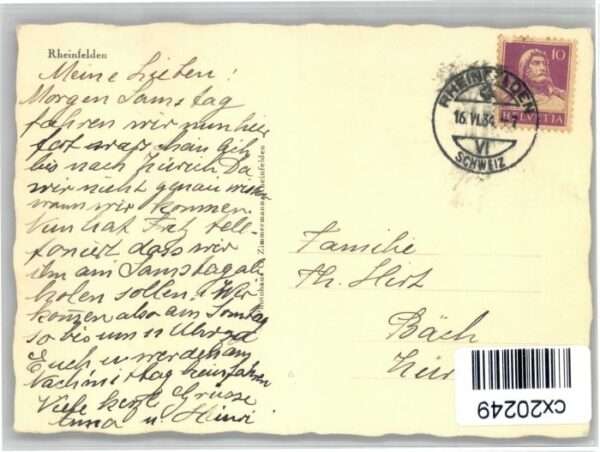 Rheinfelden
Meine Lieben!
Morgen Samstag
fahren wir nun hie
fort
bis nach Zürich. Da
wir nicht genau wissen
wann wir kommen.
Nun hat Fritz tele
foniert dass wir
ihn am Samstag ab
holen sollen. Wir
kommen also am Sonntag
so bis um 11 Uhr zu
Euch u. werden am
Nachmittag heimfahren
Viele herzl. Grüsse
Anna u. Heiri
Zimmermann, Rheinfelden
10
HELVETIA
RHEINFELDEN
16.VI.34
VI
SCHWEIZ
Familie
Th. Hirt
Bäch
cx20249